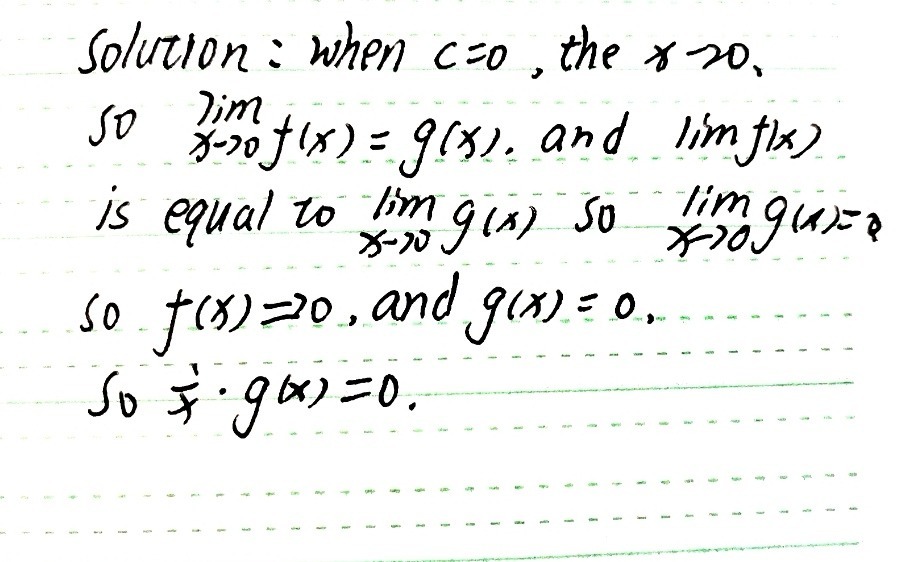 Solution : when c=0 , the x→0,
so lim x→0 f(x) = g(x). and lim f(x)
is equal to lim x→0 g(x) so lim x→0 g(x)=0
so f(x)=>0 , and g(x) = 0,
So 1/x · g(x) =0.